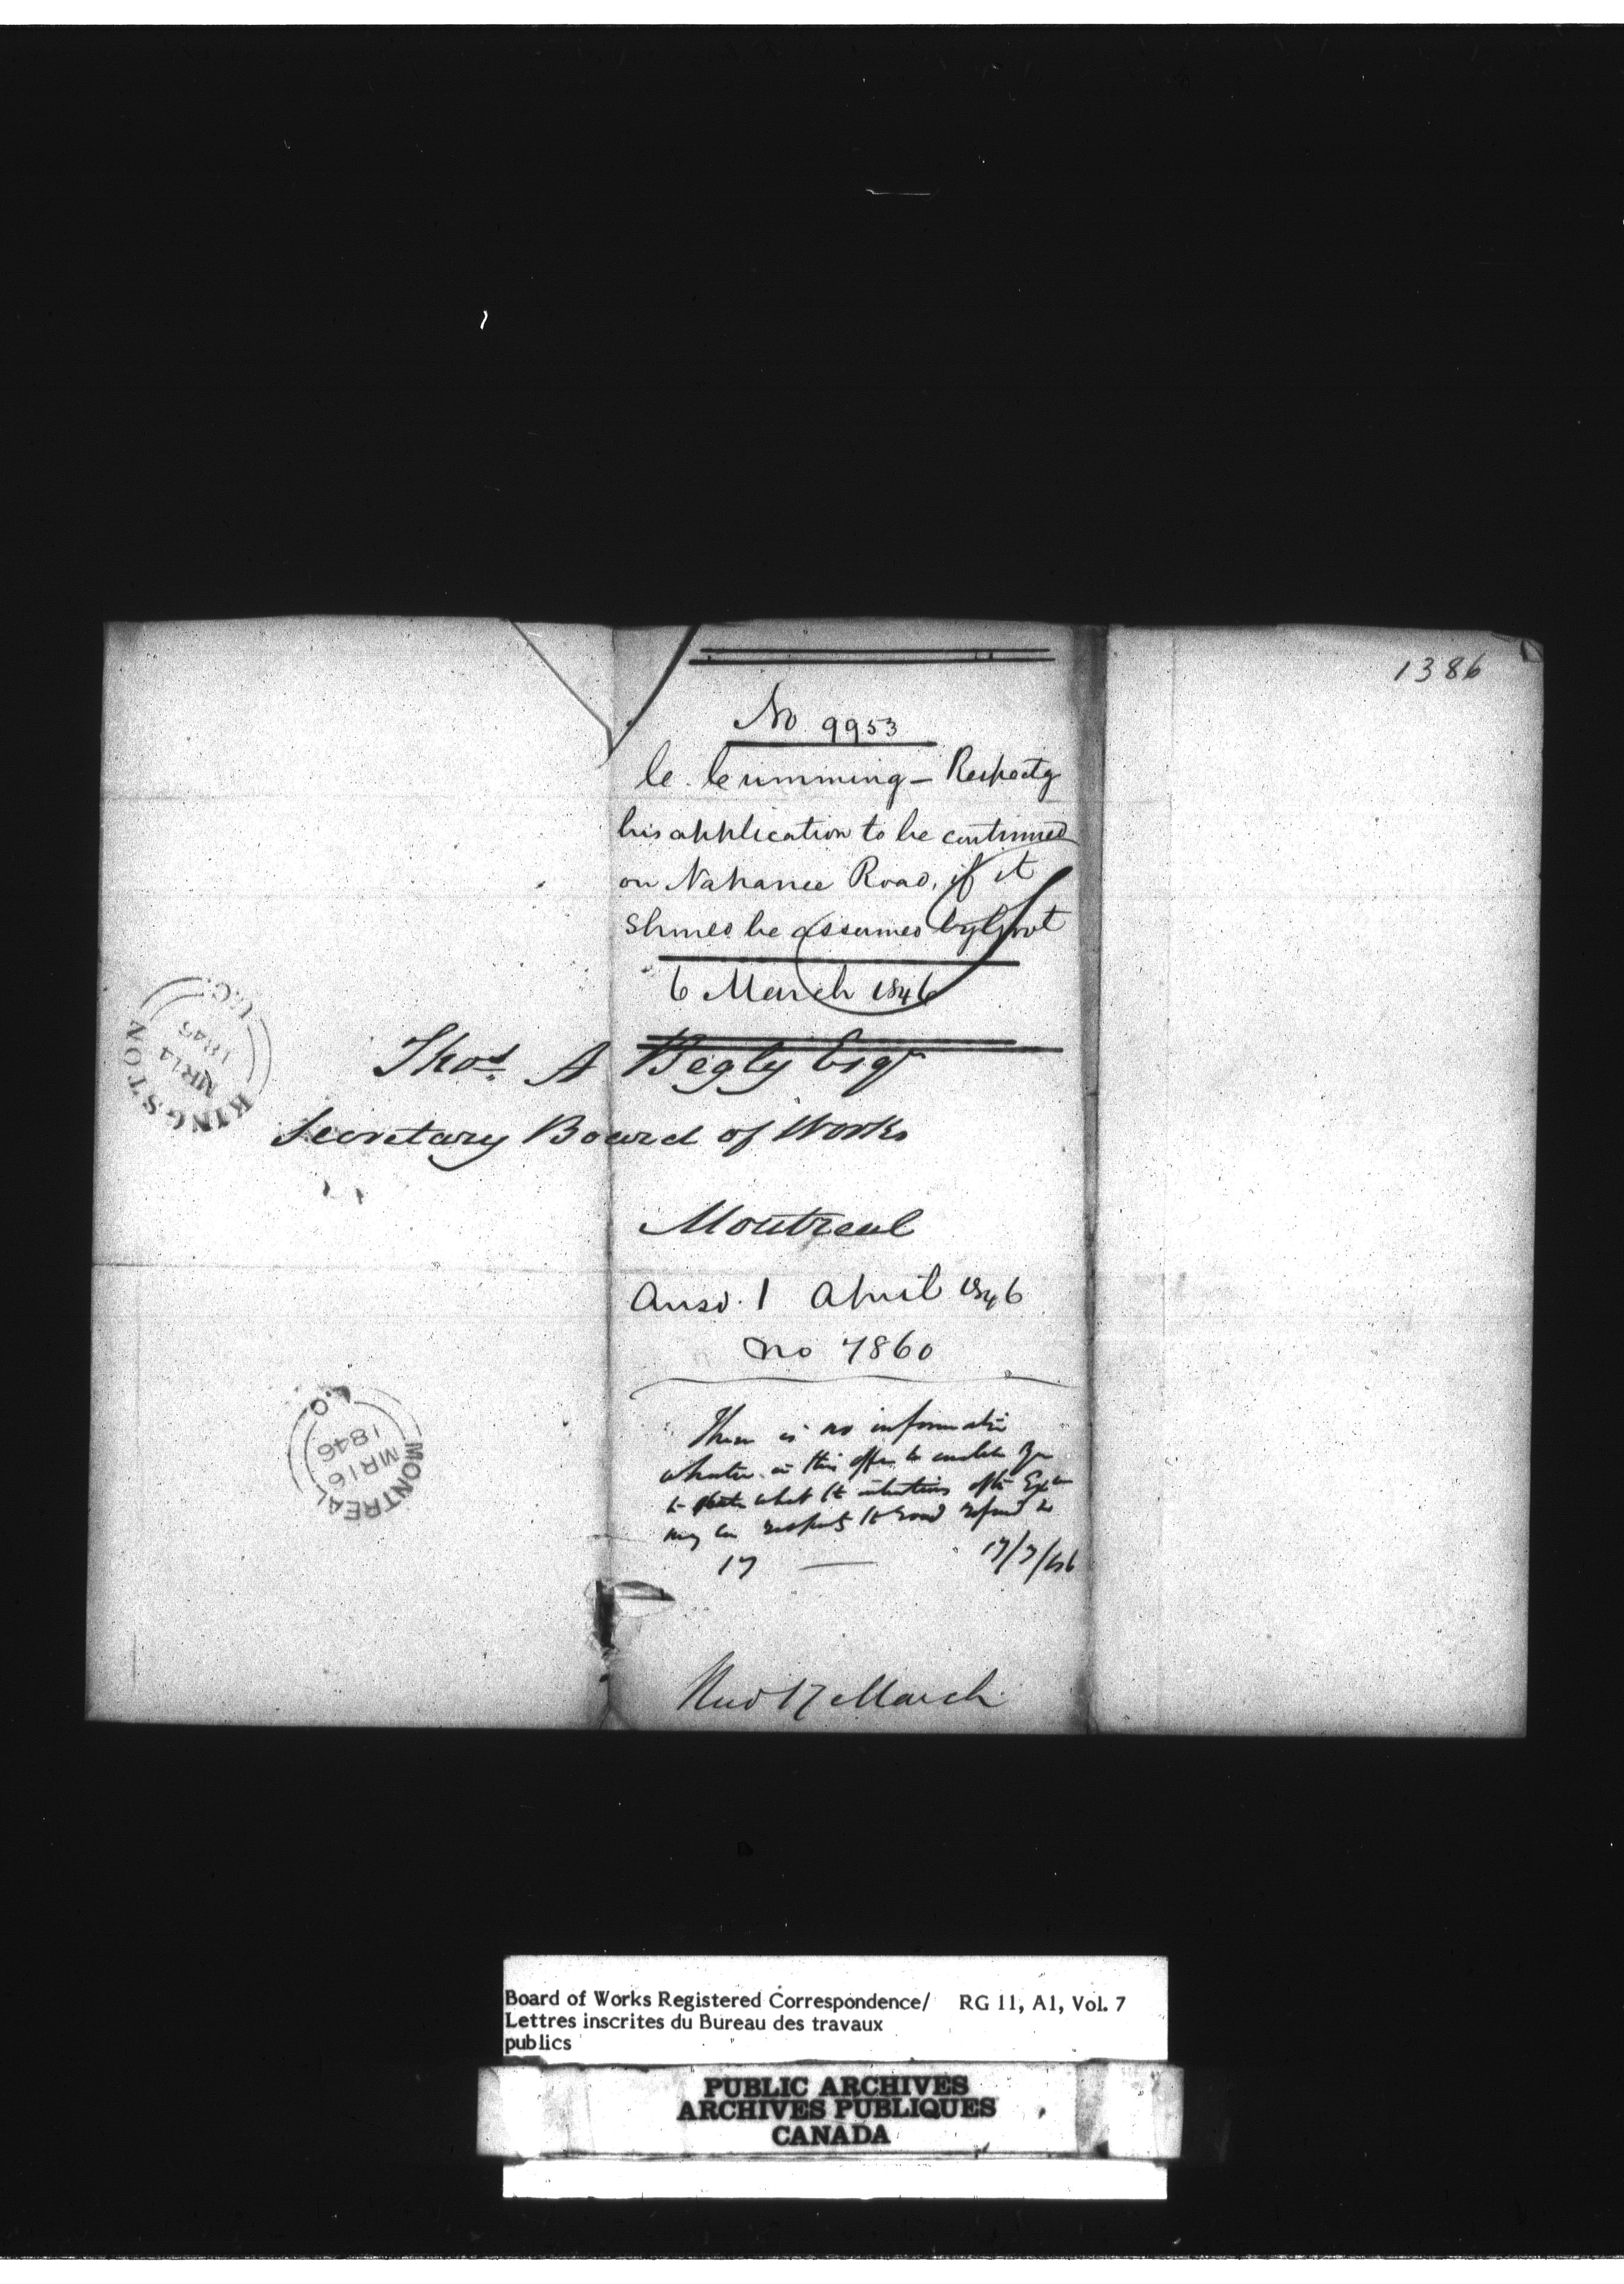 1386
No 9953
C. Cumming - Respectg
his application to be continued
on Napanee Road, if it
should be assumed by Govt
6 March 1846
KINGSTON
MR 14
1846
U.C.
Thos. A Begly Esqr
Secretary Board of Works
Montreal
Ansd. 1 April 1846
no 7860
MONTREAL
MR 16
1846
There is no informatn
in this office to enable
to state what the intentions of the
may be respects the road referred to
17
Recd 17 March
Board of Works Registered Correspondence/ RG 11, A1, Vol. 7
Lettres inscrites du Bureau des travaux
publics
PUBLIC ARCHIVES
ARCHIVES PUBLIQUES
CANADA